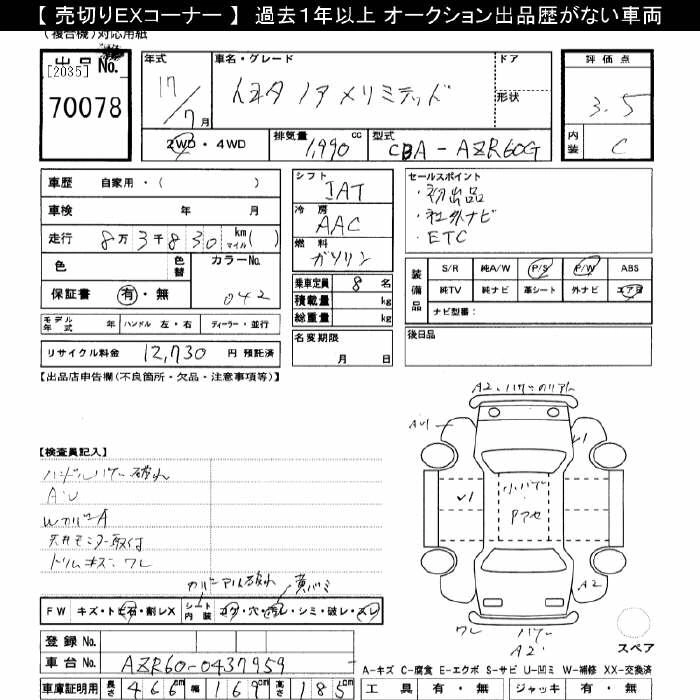 【 売切りEXコーナー 】 過去1年以上 オークション出品歴がない車両
(複合機)対応用紙
出品No. [2035] 70078
年式 17/7月
車名・グレード トヨタ ノア Xリミテッド
ドア
形状
2WD・4WD
排気量 1,990 cc
型式 CBA-AZR60G
評価点 3.5
内装 C
車歴 自家用・( )
車検 年 月
走行 8万3千830 km マイル( )
色 色替 カラーNo. 042
保証書 有・無
モデル年式 年 ハンドル 左・右 ディーラー・並行
リサイクル料金 12,730 円 預託済
シフト IAT
冷房 AAC
燃料 ガソリン
乗車定員 8 名
積載量 kg
総重量 kg
名変期限 月 日
セールスポイント
・初出品
・社外ナビ
・ETC
装備品 S/R 純A/W P/S P/W ABS
純TV 純ナビ 革シート 外ナビ エアB
ナビ型番:
後日品
【出品店申告欄(不良箇所・欠品・注意事項等)】
【検査員記入】
ハンドルカバー破れ
AU
WカバーA
天井モニター取付
トリムキズ・ワレ
FW キズ・トビ石・割レX
シート内装 コゲ・穴・汚レ・シミ・破レ・スレ
登録No.
車台No. AZR60-0437959
車庫証明用 長さ 466cm 幅 169cm 高さ 185cm
AU
U1
U1
A2
ワレ
A2
スペア
A-キズ C-腐食 E-エクボ S-サビ U-凹ミ W-補修 XX-交換済
工具 有・無 ジャッキ 有・無